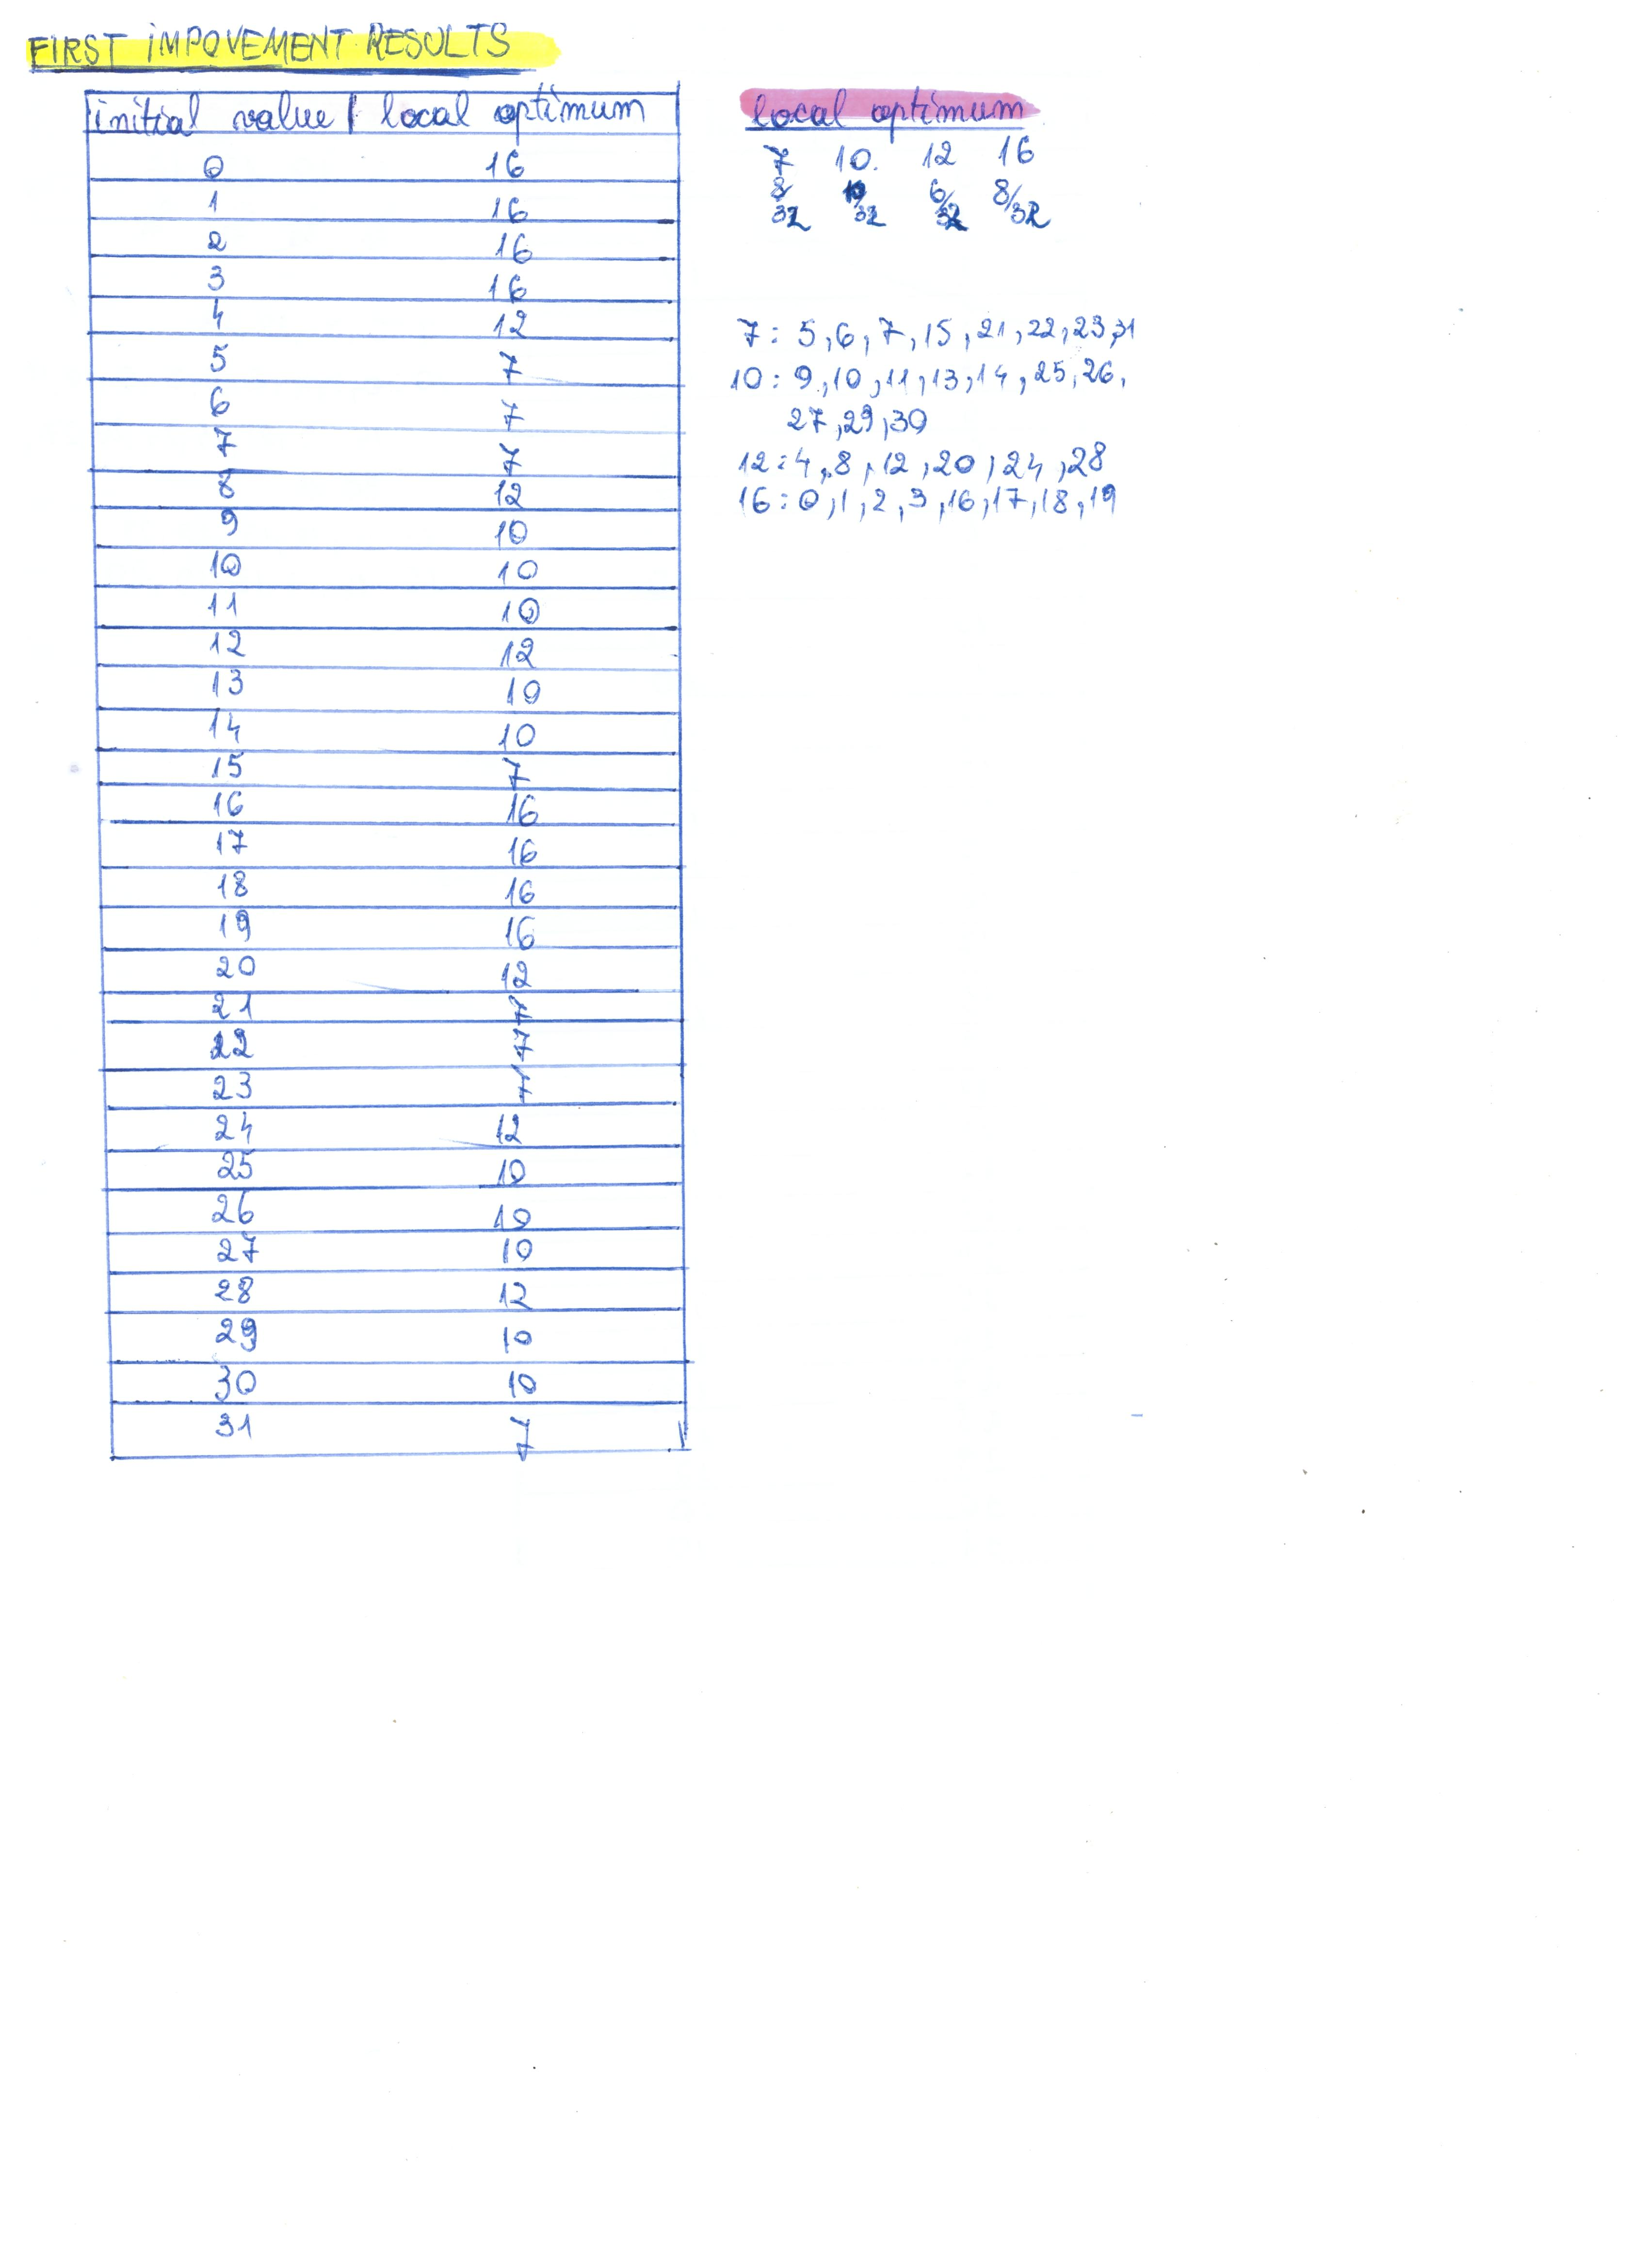 FIRST IMPOVEMENT RESULTS
initial value | local optimum
0 16
1 16
2 16
3 16
4 12
5 7
6 7
7 7
8 12
9 10
10 10
11 10
12 12
13 10
14 10
15 7
16 16
17 16
18 16
19 16
20 12
21 7
22 7
23 7
24 12
25 10
26 10
27 10
28 12
29 10
30 10
31 7
local optimum
7 10. 12 16
8/32 10/32 6/32 8/32
7: 5,6,7,15,21,22,23,31
10: 9,10,11,13,14,25,26,
27,29,30
12: 4,8,12,20,24,28
16: 0,1,2,3,16,17,18,19